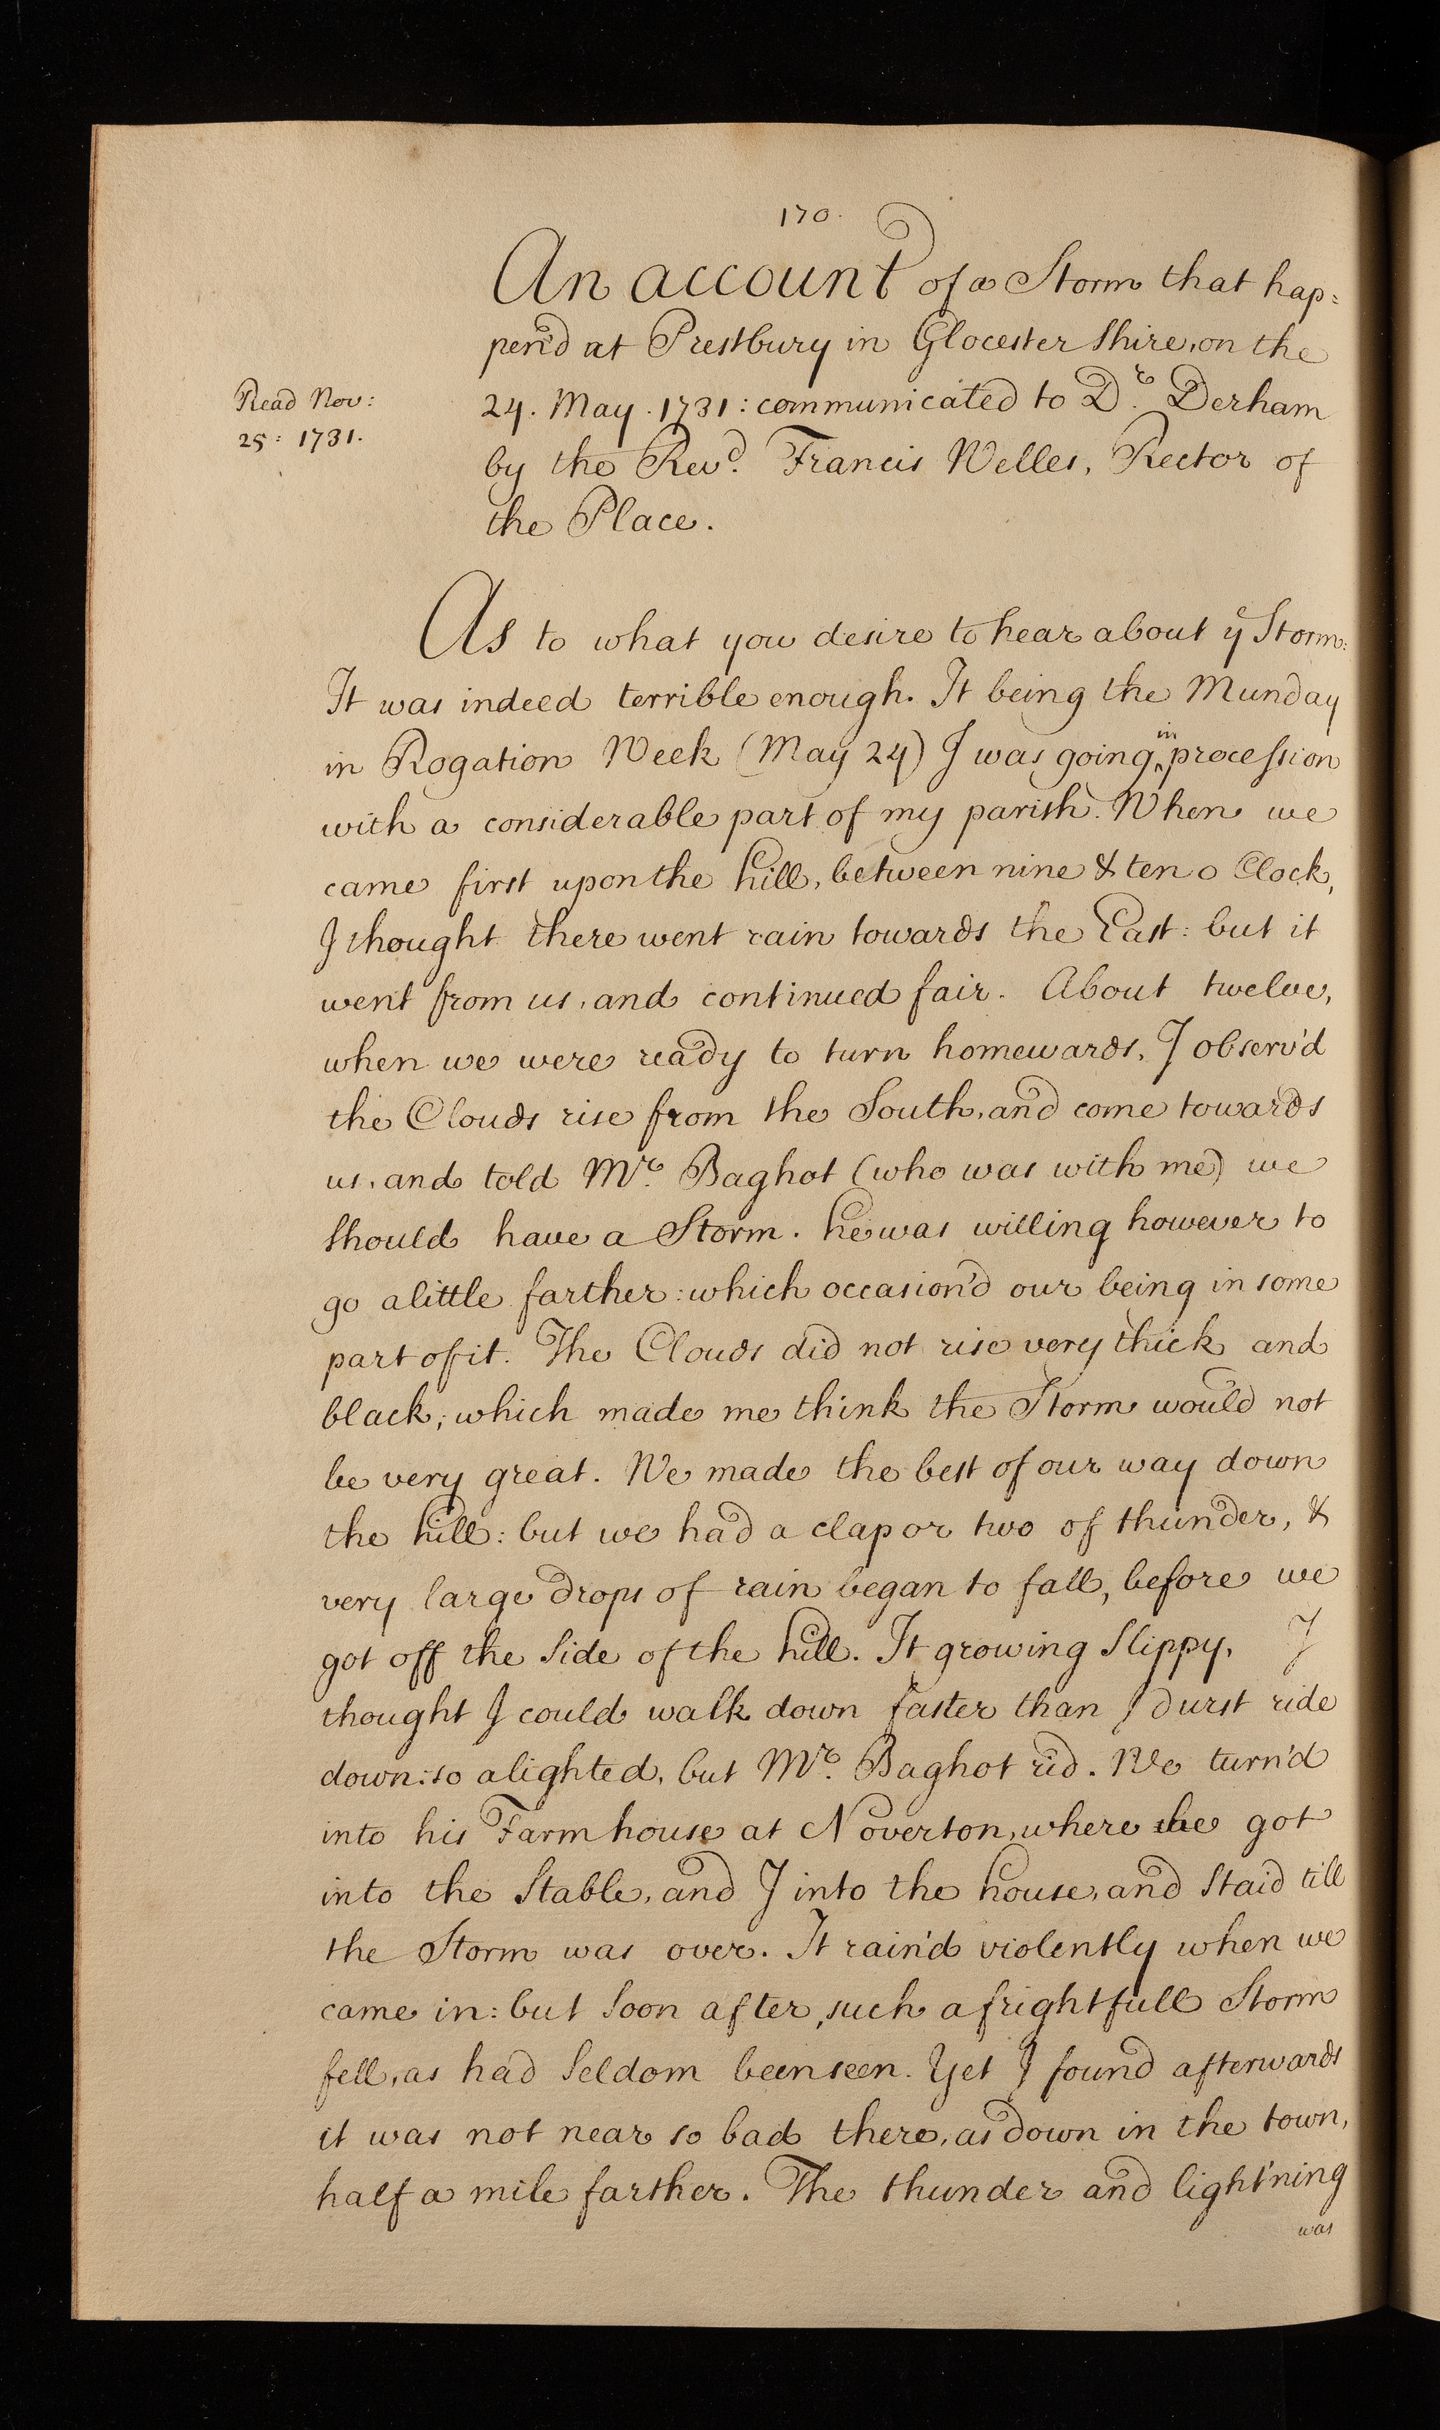 170.
An account of a Storm that hap:
pen'd at Prestbury in Glocestershire, on the
Read Nov:
25: 1731.
24. May. 1731: communicated to Dr. Derham
by the Revd. Francis Welles, Rector of
the Place.
As to what you desire to hear about ye Storm:
It was indeed terrible enough. It being the Munday
in Rogation Week (May 24) I was going in procession
with a considerable part of my parish. When we
came first upon the hill, between nine & ten o Clock,
I thought there went rain towards the East: but it
went from us, and continued fair. About twelve,
when we were ready to turn homewards, I observ'd
the Clouds rise from the South, and come towards
us, and told Mr. Baghot (who was with me) we
should have a Storm. he was willing however to
go a little farther: which occasion'd our being in some
part of it. The Clouds did not rise very thick and
black; which made me think the Storm would not
be very great. We made the best of our way down
the hill: but we had a clap or two of thunder, &
very large drops of rain began to fall, before we
got off the side of the hill. It growing slippy, I
thought I could walk down faster than I durst ride
down: so alighted, but Mr. Baghot rid. We turn'd
into his Farm house at Noverton, where he got
into the Stable, and I into the house, and staid till
the Storm was over. It rain'd violently when we
came in: but soon after, such a frightfull Storm
fell, as had seldom been seen. Yet I found afterwards
it was not near so bad there, as down in the town,
half a mile farther. The thunder and light'ning
was